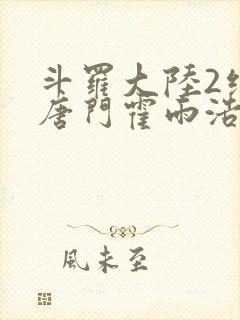 斗羅大陸2絕
唐門霍雨浩
風未至